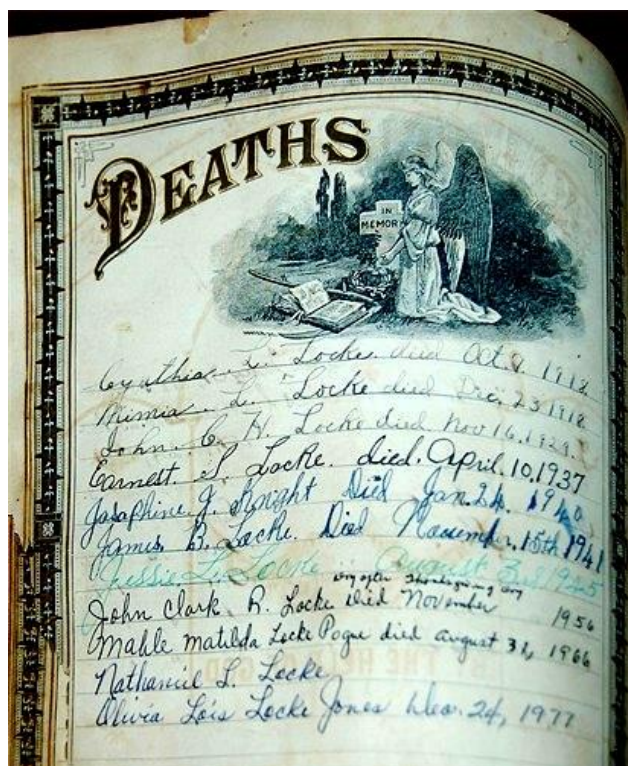 DEATHS
IN
MEMOR
Cynthia L. Locke died Oct. 9 1918
Mimia. L. Locke died Dec. 23 1918
John. C. H. Locke died Nov 16. 1929.
Earnest. S. Locke. died. April. 10. 1937
Josaphine. J. Knight Died Jan. 24. 1940
James. B. Locke. Died November. 15th 1941
Jessie. L. Locke August 3rd
day after Thanksgiving day
John Clark. R. Locke died November 1956
Mable Matilda Locke Pogue died august 31, 1966
Nathaniel L. Locke
Olivia Lois Locke Jones 24, 1977